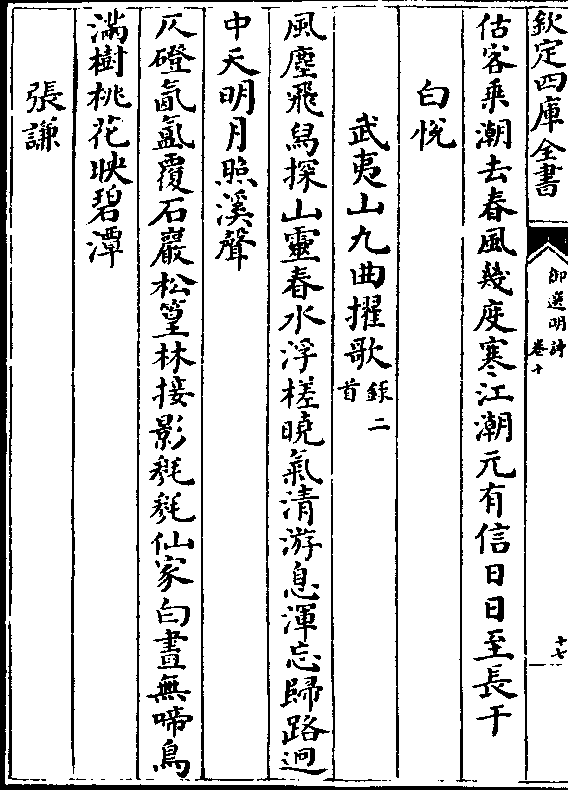 欽定四庫全書
御選明詩
卷十
十七
估客乘潮去春風幾度寒江潮元有信日日至長干
白悅
武夷山九曲擢歌錄二首
風塵飛舄探山靈春水浮槎曉氣清游息渾忘歸路迥
中天明月照溪聲
仄磴氤氳覆石巖松篁林接影毿毿仙家白晝無啼鳥
滿樹桃花映碧潭
張謙